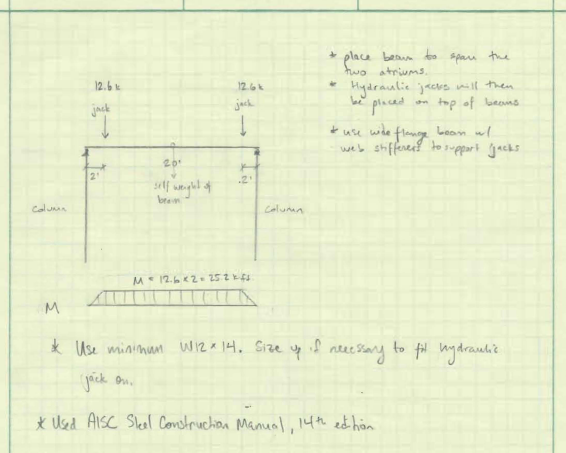 * place beam to span the
two atriums.
* Hydraulic jacks will then
be placed on top of beams
* use wide flange beam w/
web stiffeners to support jacks
12.6 k
jack
12.6 k
jack
20'
2'
2'
self weight of
beam
Column
Column
M = 12.6 x 2 = 25.2 k·ft
M
* Use minimum W12 x 14. Size up if necessary to fit hydraulic
jack on.
* Used AISC Steel Construction Manual, 14th edition